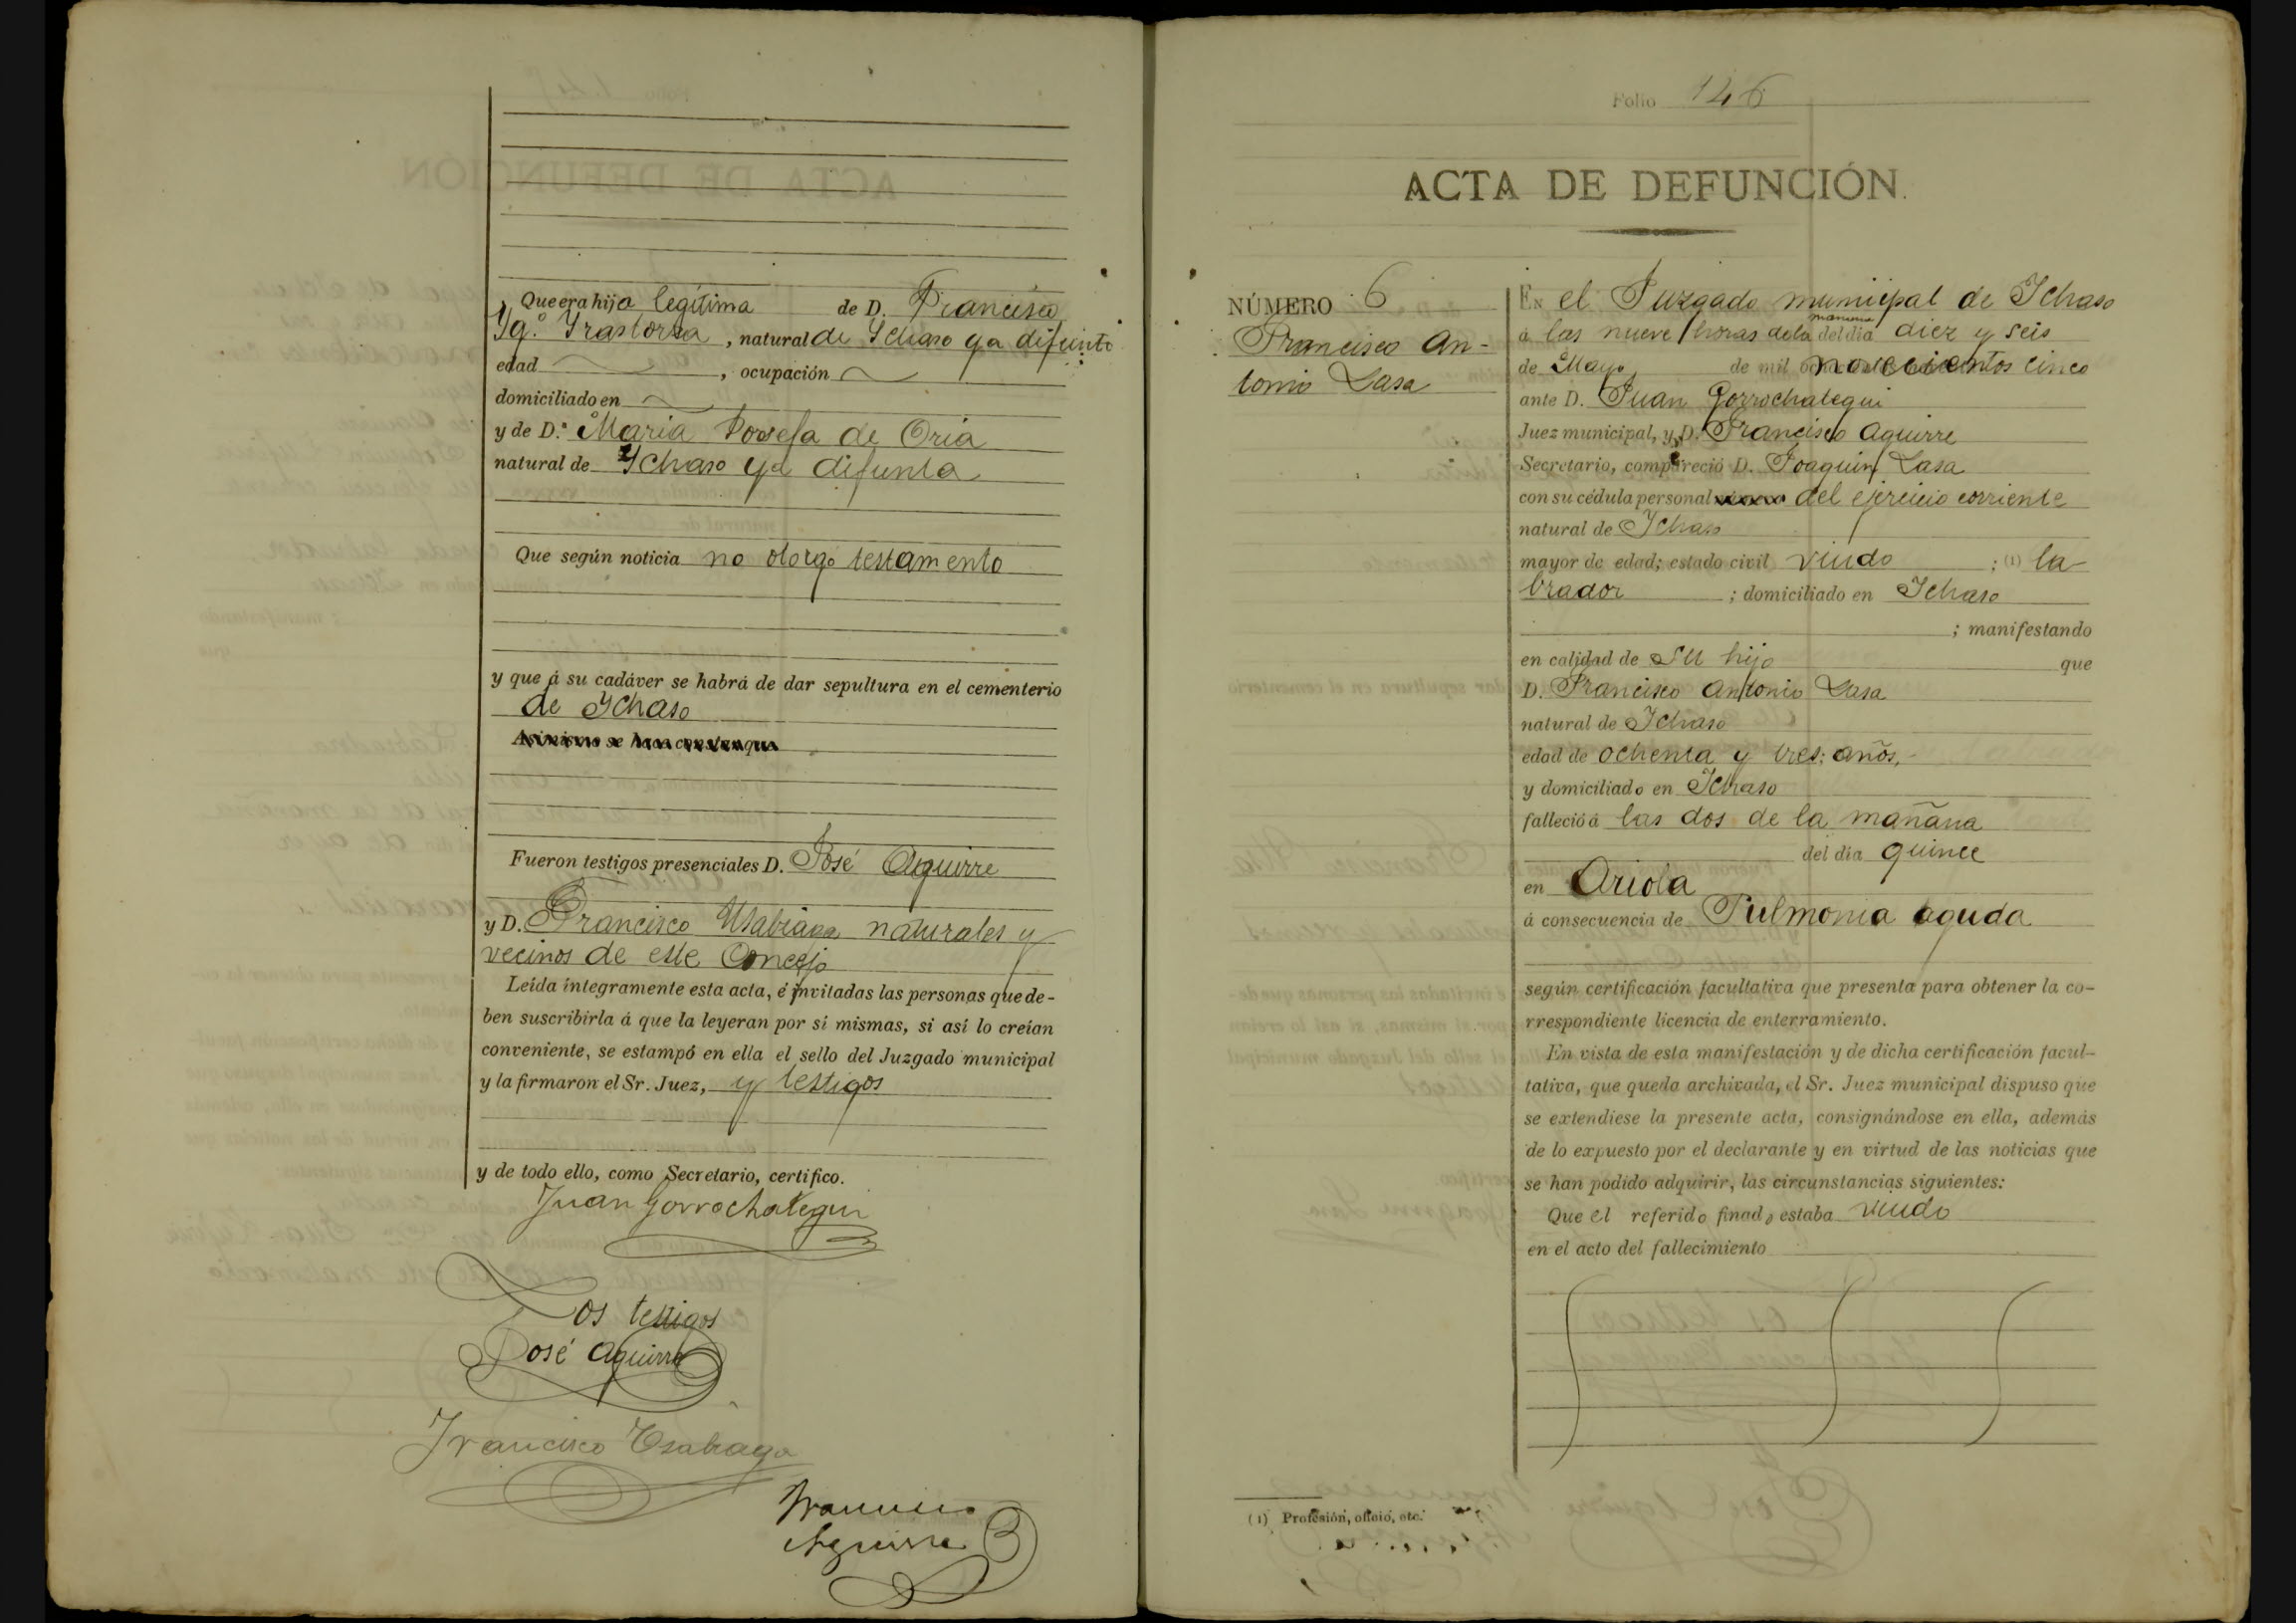 Que era hija legítima de D. Francisco
Ygº. Yrastorza, natural de Ychaso ya difunto
edad , ocupación
domiciliado en
y de D.ª Maria Josefa de Oria
natural de Ychaso ya difunta
Que según noticia no otorgo testamento
y que á su cadáver se habrá de dar sepultura en el cementerio
de Ychaso
Asimismo se hace constar que
Fueron testigos presenciales D. José Aguirre
y D. Francisco Usabiaga naturales y
vecinos de este Concejo
Leída íntegramente esta acta, é invitadas las personas que de-
ben suscribirla á que la leyeran por sí mismas, si así lo creían
conveniente, se estampó en ella el sello del Juzgado municipal
y la firmaron el Sr. Juez, y testigos
y de todo ello, como Secretario, certifico.
Juan Gorrochategui
Los testigos
José Aguirre
Francisco Usabiaga
Francisco
Aguirre
Folio 146
ACTA DE DEFUNCIÓN.
NÚMERO 6
Francisco An-
tonio Lasa
En el Juzgado municipal de Ychaso
á las nueve horas de la mañana del día diez y seis
de Mayo de mil novecientos cinco
ante D. Juan Gorrochategui
Juez municipal, y D. Francisco Aguirre
Secretario, compareció D. Joaquin Lasa
con su cédula personal número del ejercicio corriente
natural de Ychaso
mayor de edad; estado civil viudo ; (1) la-
brador ; domiciliado en Ychaso
; manifestando
en calidad de su hijo que
D. Francisco Antonio Lasa
natural de Ychaso
edad de ochenta y tres años,
y domiciliado en Ychaso
falleció á las dos de la mañana
del día quince
en Oriola
á consecuencia de Pulmonia aguda
según certificación facultativa que presenta para obtener la co-
rrespondiente licencia de enterramiento.
En vista de esta manifestación y de dicha certificación facul-
tativa, que queda archivada, el Sr. Juez municipal dispuso que
se extendiese la presente acta, consignándose en ella, además
de lo expuesto por el declarante y en virtud de las noticias que
se han podido adquirir, las circunstancias siguientes:
Que el referido finado estaba viudo
en el acto del fallecimiento
(1) Profesión, oficio, etc.